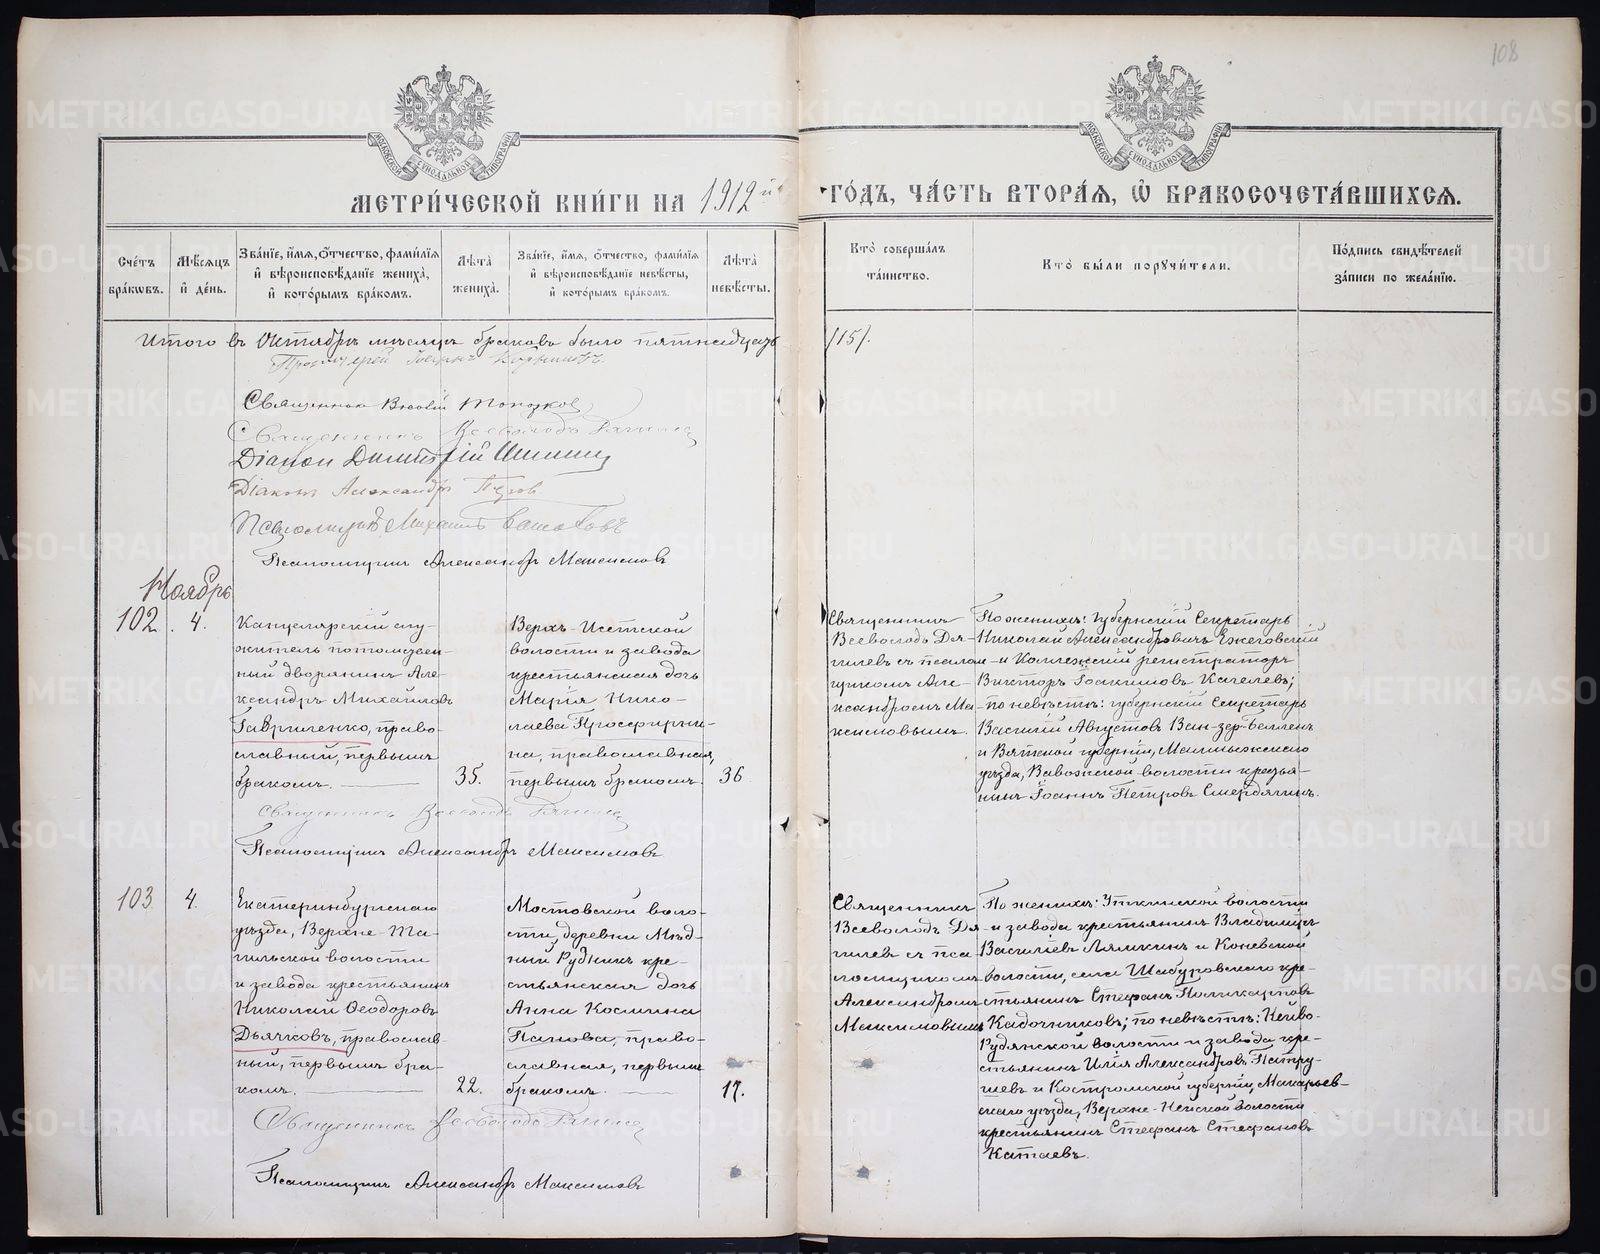 108
МЕТРИ́ЧЕСКОЙ КНИ́ГИ НА 1912 й
ГО́ДЪ, ЧА́СТЬ ВТОРА́Я, Ѡ҆ БРАКОСОЧЕТА́ВШИХСЯ.
Сче́тъ бра́кѡвъ.
Мѣ́сяцъ и҆ де́нь.
Зва́нїе, и҆́мя, ѻ҆́тчество, фами́лїя и҆ вѣроисповѣ́данїе жениха̀, и҆ кото́рымъ бра́комъ.
Лѣ́та жениха̀.
Зва́нїе, и҆́мя, ѻ҆́тчество, фами́лїя и҆ вѣроисповѣ́данїе невѣ́сты, и҆ кото́рымъ бра́комъ.
Лѣ́та невѣ́сты.
Кто̀ соверша́лъ та́инство.
Кто̀ бы́ли порꙋчи́тели.
По́дпись свидѣ́телей за́писи по жела́нїю.
Итого въ Октябрѣ мѣсяцѣ браковъ было пятнадцать /15/.
Протоіерей Іоаннъ
Священникъ
Священникъ Всеволодъ Дягилевъ
Діаконъ Димитрій
Діаконъ Александръ
Псаломщикъ Михаилъ
Псаломщикъ Александръ Максимовъ
Ноябрь
102. 4.
Канцелярскій слу-
житель потомствен-
ный дворянинъ Але-
ксандръ Михайловъ
Гавриленко, право-
славный, первымъ
бракомъ.
35.
Верхъ-Исетской
волости и завода
крестьянская дочь
Марія Нико-
лаева Просфирни-
на, православная,
первымъ бракомъ.
36
Священникъ
Всеволодъ Дя-
гилевъ съ псалом-
щикомъ Але-
ксандромъ Ма-
ксимовымъ.
По женихѣ: Губернскій Секретарь
Николай Александровичъ Ежеговскій
и Коллежскій регистраторъ
Викторъ Іоакимовъ Кагелевъ;
по невѣстѣ: губернскій Секретарь
Василій Августовъ Ван-зер-Белленъ
и Вятской губерніи, Малмыжскаго
уѣзда, Вавожской волости крестья-
нинъ Іоаннъ Петровъ Смердягинъ.
Священникъ Всеволодъ Дягилевъ
Псаломщикъ Александръ Максимовъ
103 4.
Екатеринбургскаго
уѣзда, Верхне-Та-
гильской волости
и завода крестьянинъ
Николай Ѳеодоровъ
Дьячковъ, православ-
ный, первымъ бра-
комъ.
22.
Мостовской воло-
сти, деревни Мѣд-
ный Рудникъ кре-
стьянская дочь
Анна Космина
Панова, право-
славная, первымъ
бракомъ.
17.
Священникъ
Всеволодъ Дя-
гилевъ съ пса-
ломщикомъ
Александромъ
Максимовымъ
По женихѣ: Уткинской волости
и завода крестьянинъ Владиміръ
Василіевъ Лямкинъ и Коневской
волости, села Шабуровскаго кре-
стьянинъ Стефанъ Поликарповъ
Кадочниковъ; по невѣстѣ: Нейво-
Рудянской волости и завода кре-
стьянинъ Илія Александровъ Патру-
шевъ и Костромской губерніи, Макарьев-
скаго уѣзда, Верхне-Нейской волости
крестьянинъ Стефанъ Стефановъ
Катаевъ.
Священникъ Всеволодъ Дягилевъ
Псаломщикъ Александръ Максимовъ
METRIKI.GASO-URAL.RU